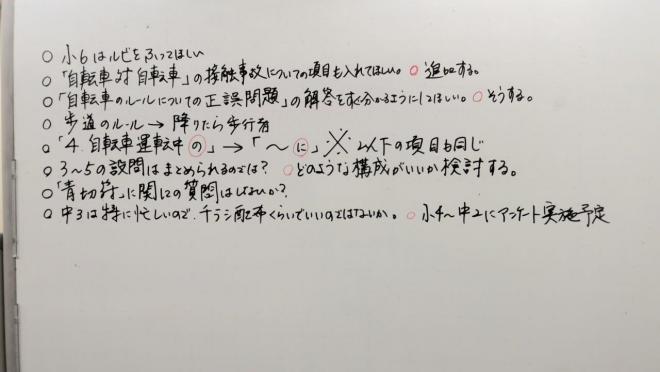 ○ 小6はルビをふってほしい
○「自転車対自転車」の接触事故についての項目も入れてほしい。○ 追加する。
○「自転車のルールについての正誤問題」の解答をすぐ分かるようにしてほしい。○ そうする。
○ 歩道のルール → 降りたら歩行者
○「4. 自転車運転中の」→「〜に」※ 2以下の項目も同じ
○ 3〜5の設問はまとめられるのでは? ○どのような構成がいいか検討する。
○「青切符」に関しての質問はしないか?
○ 中3は特に忙しいので、チラシ配布くらいでいいのではないか。○ 小4〜中2にアンケート実施予定